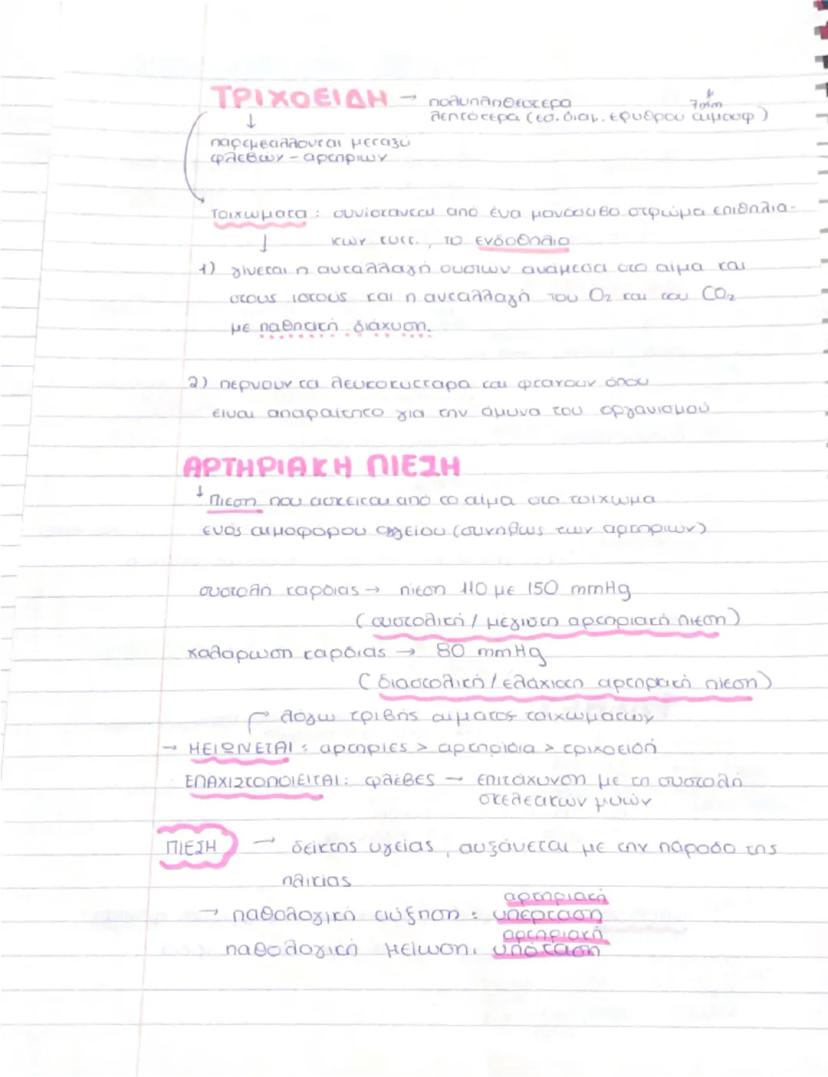 ΤΡΙΧΟΕΙΔΗ → πολυπληθεστερα
λεπτοτερα (εσ. διαμ. ερυθρου αιμοσφ)
7mm
↓
παρεμβαλλονται μεταξυ
φλεβων - αρτηριων
τοιχωματα : συνίστανται από ένα μονοστιβο στρώμα επιθηλια-
κων κυττ., το ενδοθηλιο
1) γίνεται η ανταλλαγή ουσιων ανάμεσα στο αίμα και
στους ιστους και η ανταλλαγή του O₂ και του CO₂
με παθητική διάχυση.
2) περνουν τα λευκοκυτταρα και φτανουν όπου
ειναι απαραίτητο για την άμυνα του οργανισμού
ΑΡΤΗΡΙΑΚΗ ΠΙΕΣΗ
↓ πιεση που ασκειται από το αίμα στο τοιχωμα
ενός αιμοφορου αγγειου (συνηθως των αρτηριων)
συστολη καρδιας → πίεση 110 με 150 mmHg
(συστολική / μεγιστη αρτηριακή πιεση)
χαλαρωση καρδιας → 80 mmHg
(διαστολική / ελαχιστη αρτηριακή πιεση)
λόγω τριβής αιματος τοιχωματων
→ ΜΕΙΩΝΕΤΑΙ : αρτηριες > αρτηριδια > τριχοειδή
ΕΛΑΧΙΣΤΟΠΟΙΕΙΤΑΙ : φλεβες → επιτάχυνση με τη συστολή
σκελετικων μυών
ΠΙΕΣΗ → δεικτης υγειας, αυξάνεται με την πάροδο της
ηλικιας
→ παθολογική αύξηση : αρτηριακή υπέρταση
παθολογική μείωση : αρτηριακή υπόταση